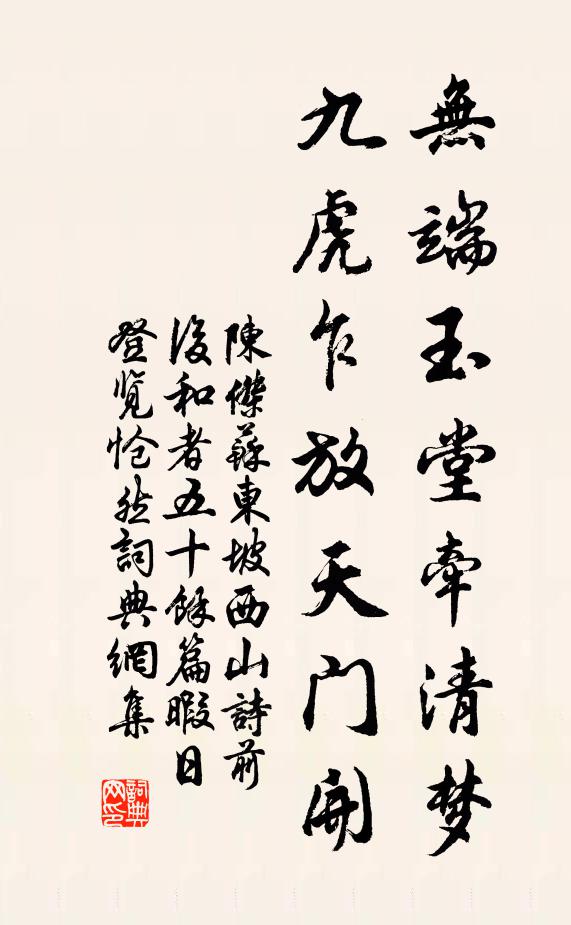 無端玉堂牽清梦
九虎乍放天门開
陳傑蘇東坡西山詩前
後和者五十餘篇暇日
登览怆然詞典網集
詞典
网印